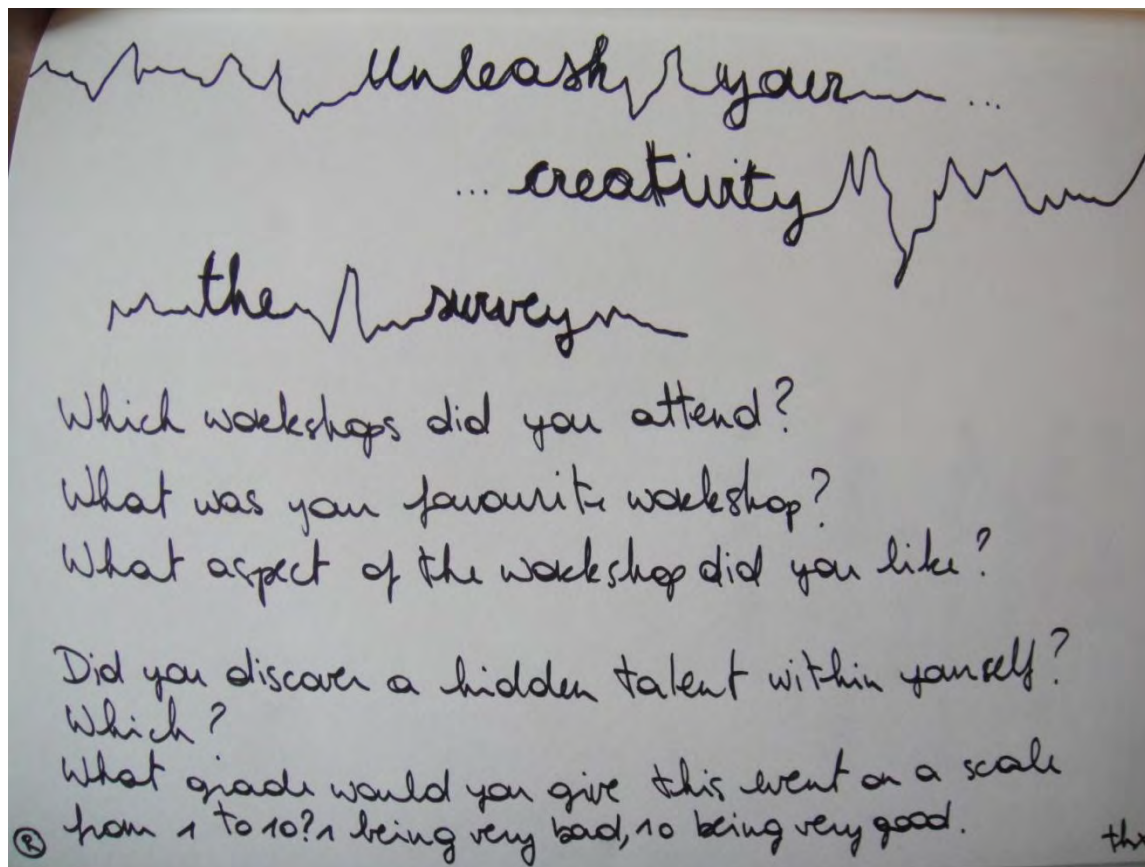 Unleash your ...
... creativity
the survey
Which workshops did you attend?
What was your favourite workshop?
What aspect of the workshop did you like?
Did you discover a hidden talent within yourself?
Which?
What grade would you give this event on a scale
from 1 to 10? 1 being very bad, 10 being very good.
®